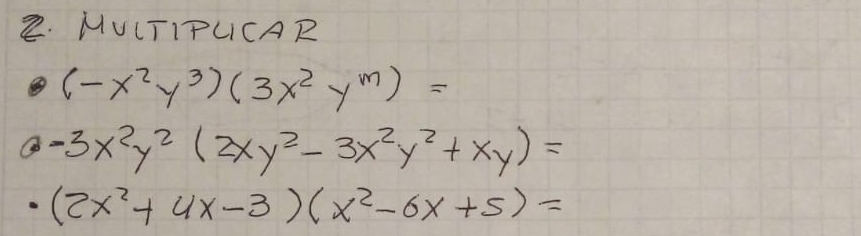 2. MULTIPLICAR
• (-x²y³)(3x² yᵐ) =
• -3x²y² (2xy² - 3x²y² + xy) =
• (2x² + 4x - 3)(x² - 6x + 5) =